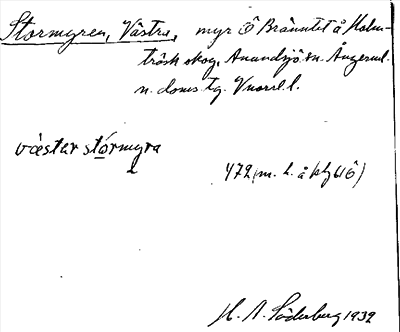 Stormyren, Västra, myr Ö Bränntet å Holm-
träsk skog, Anundsjö sn. Ångerml.
n. doms tg. V norrl. l.
väster stórmyra
472 (m. l. å
H. A. Söderberg 1932